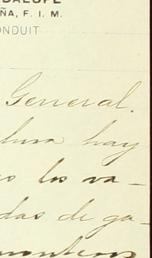 DALUPE
ÑA, F. I. M.
CONDUIT
General.
hay
los va-
das de ga-